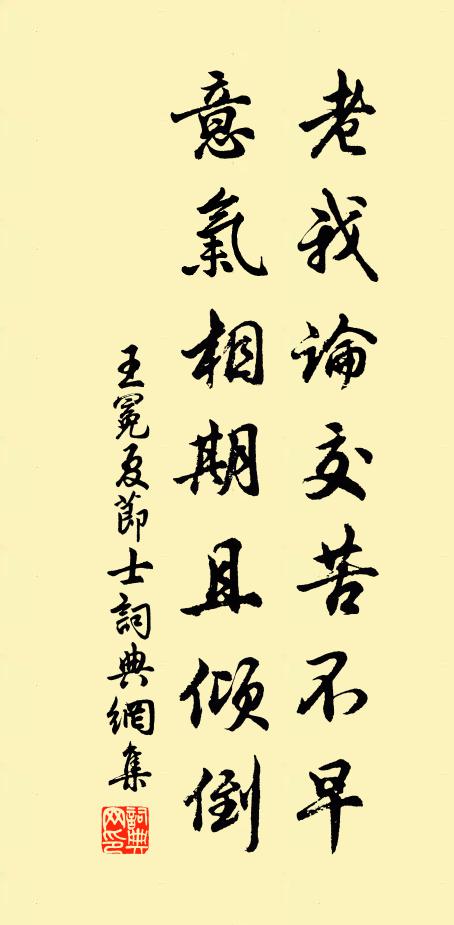 老我論交苦不早
意氣相期且傾倒
王冕夏節士詞典網集
詞典網印